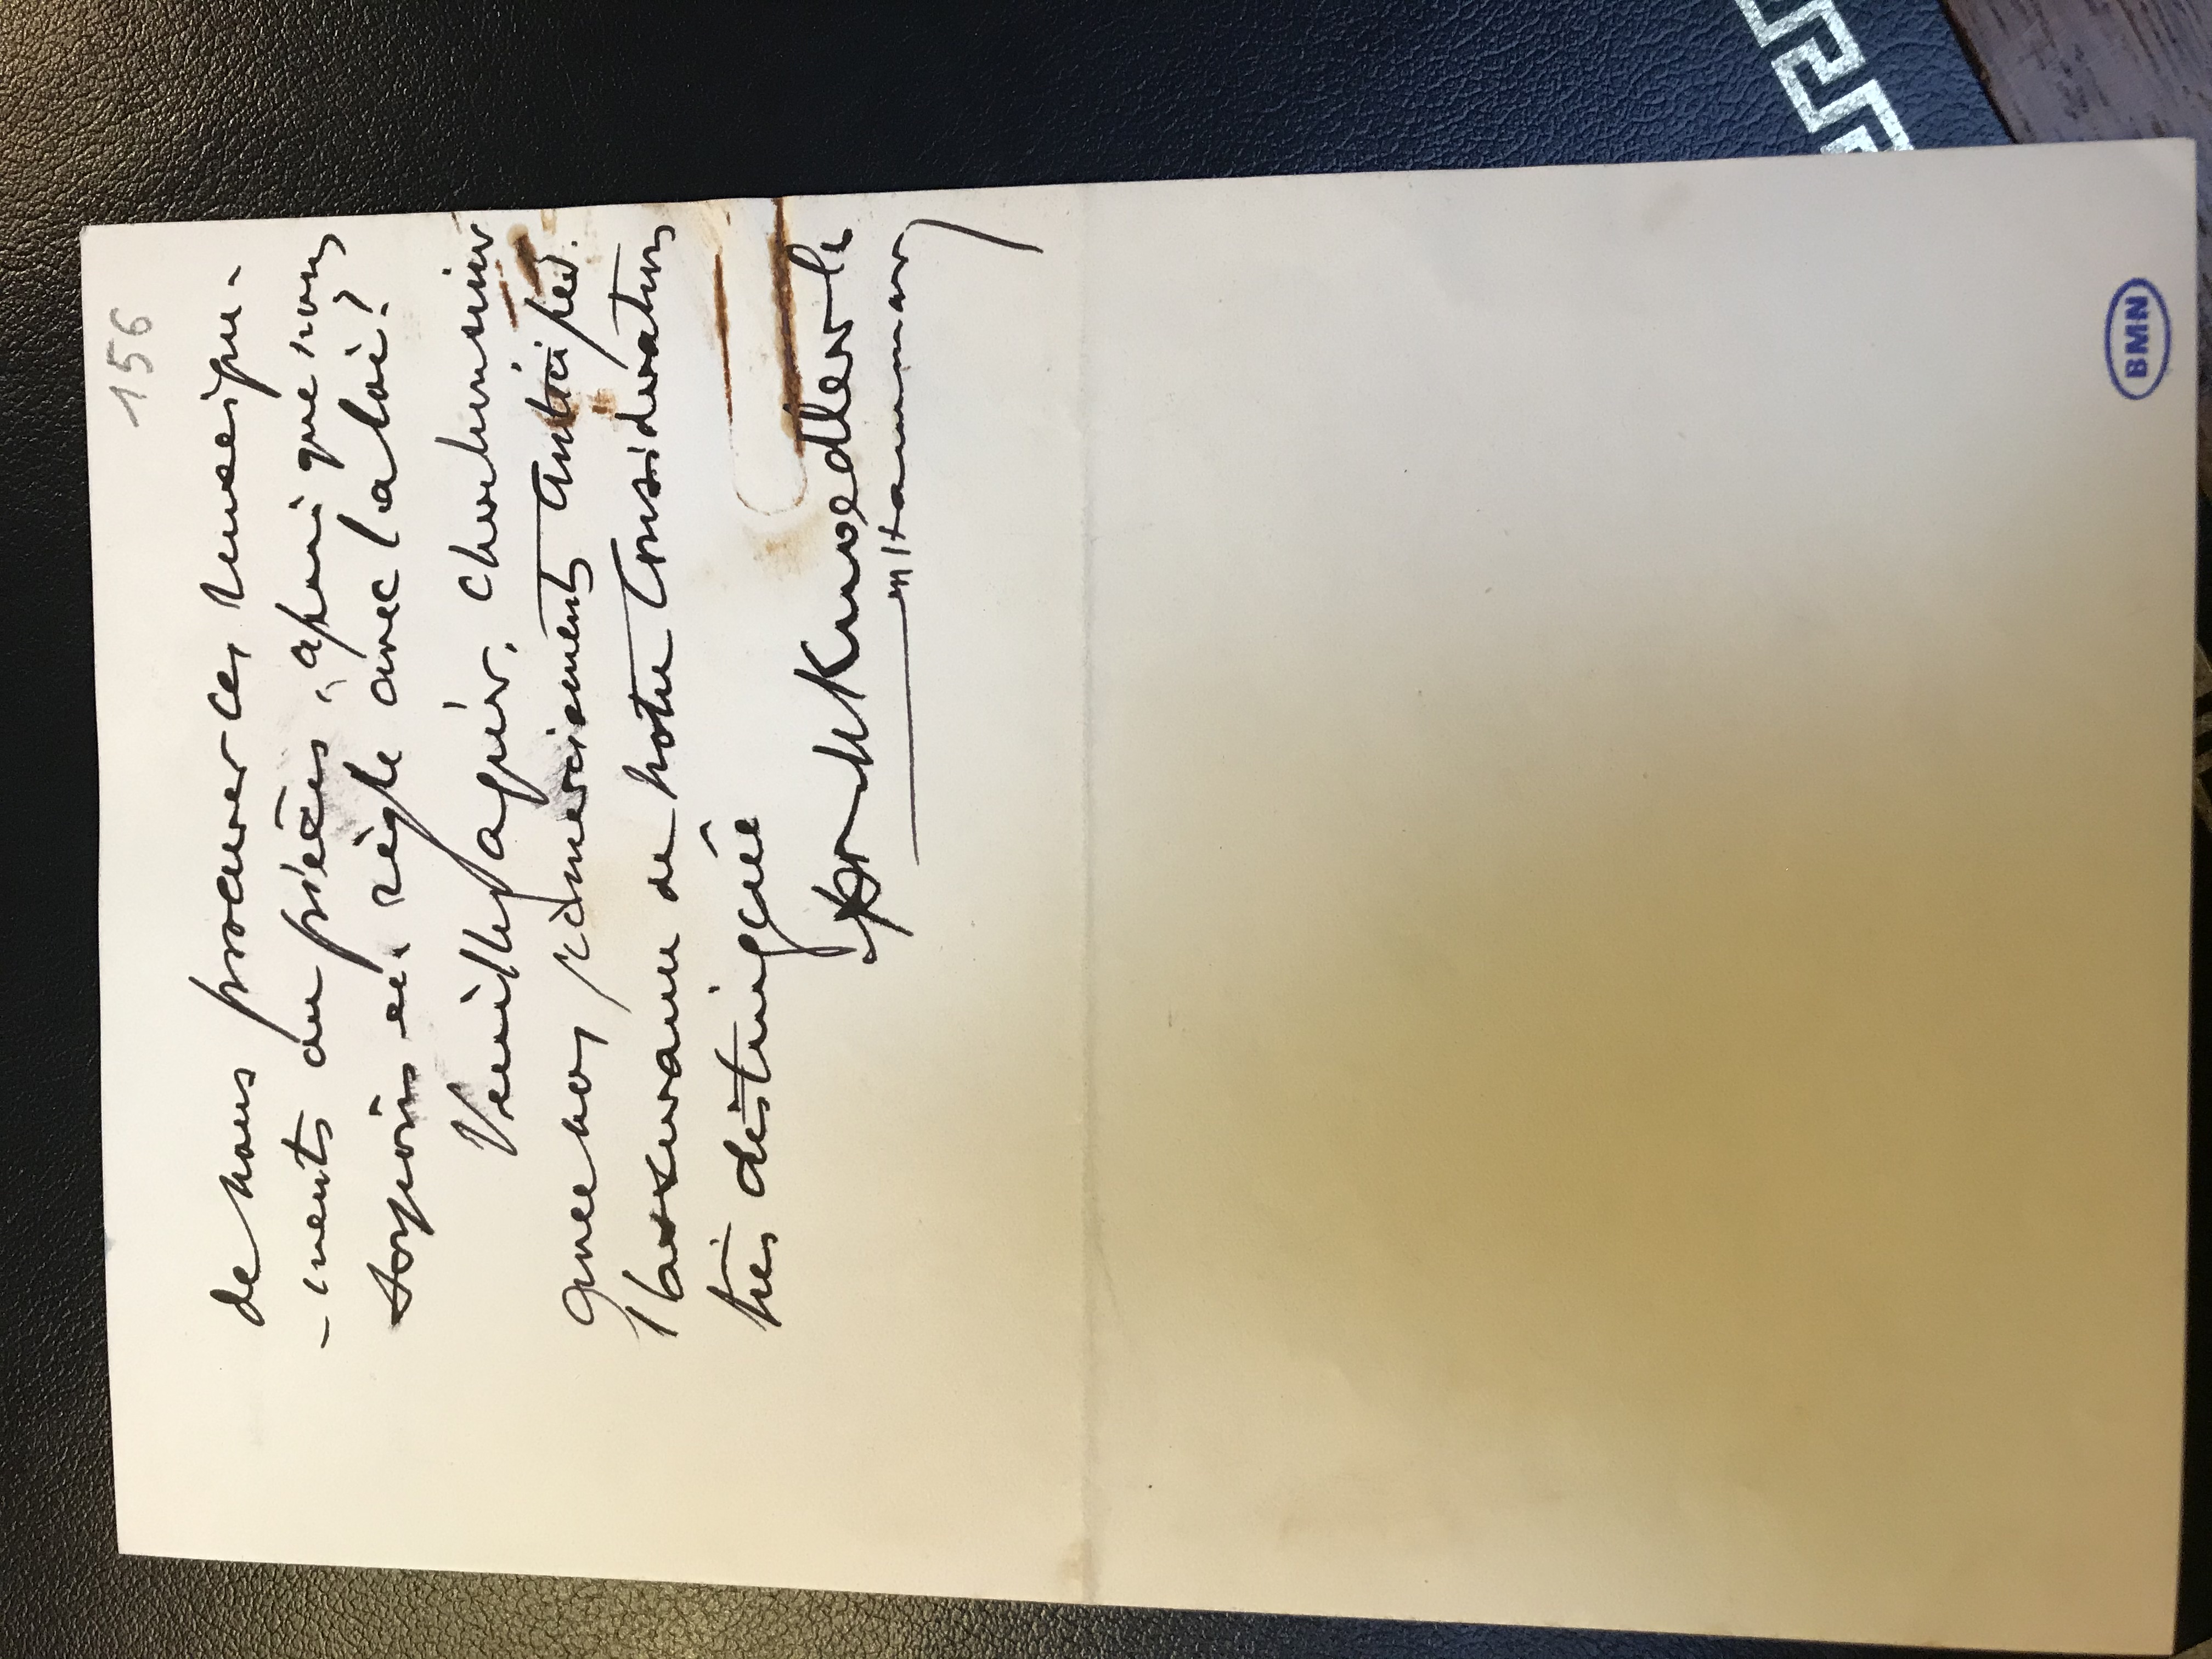 156
de nous procurer ces renseigne-
-ments ou pièces, afin que nous
soyons en règle avec la loi?
Veuillez agréer, cher Monsieur
que nos remerciements anticipés.
l'assurance de notre Considération
très distinguée
Knoedler &
BMN